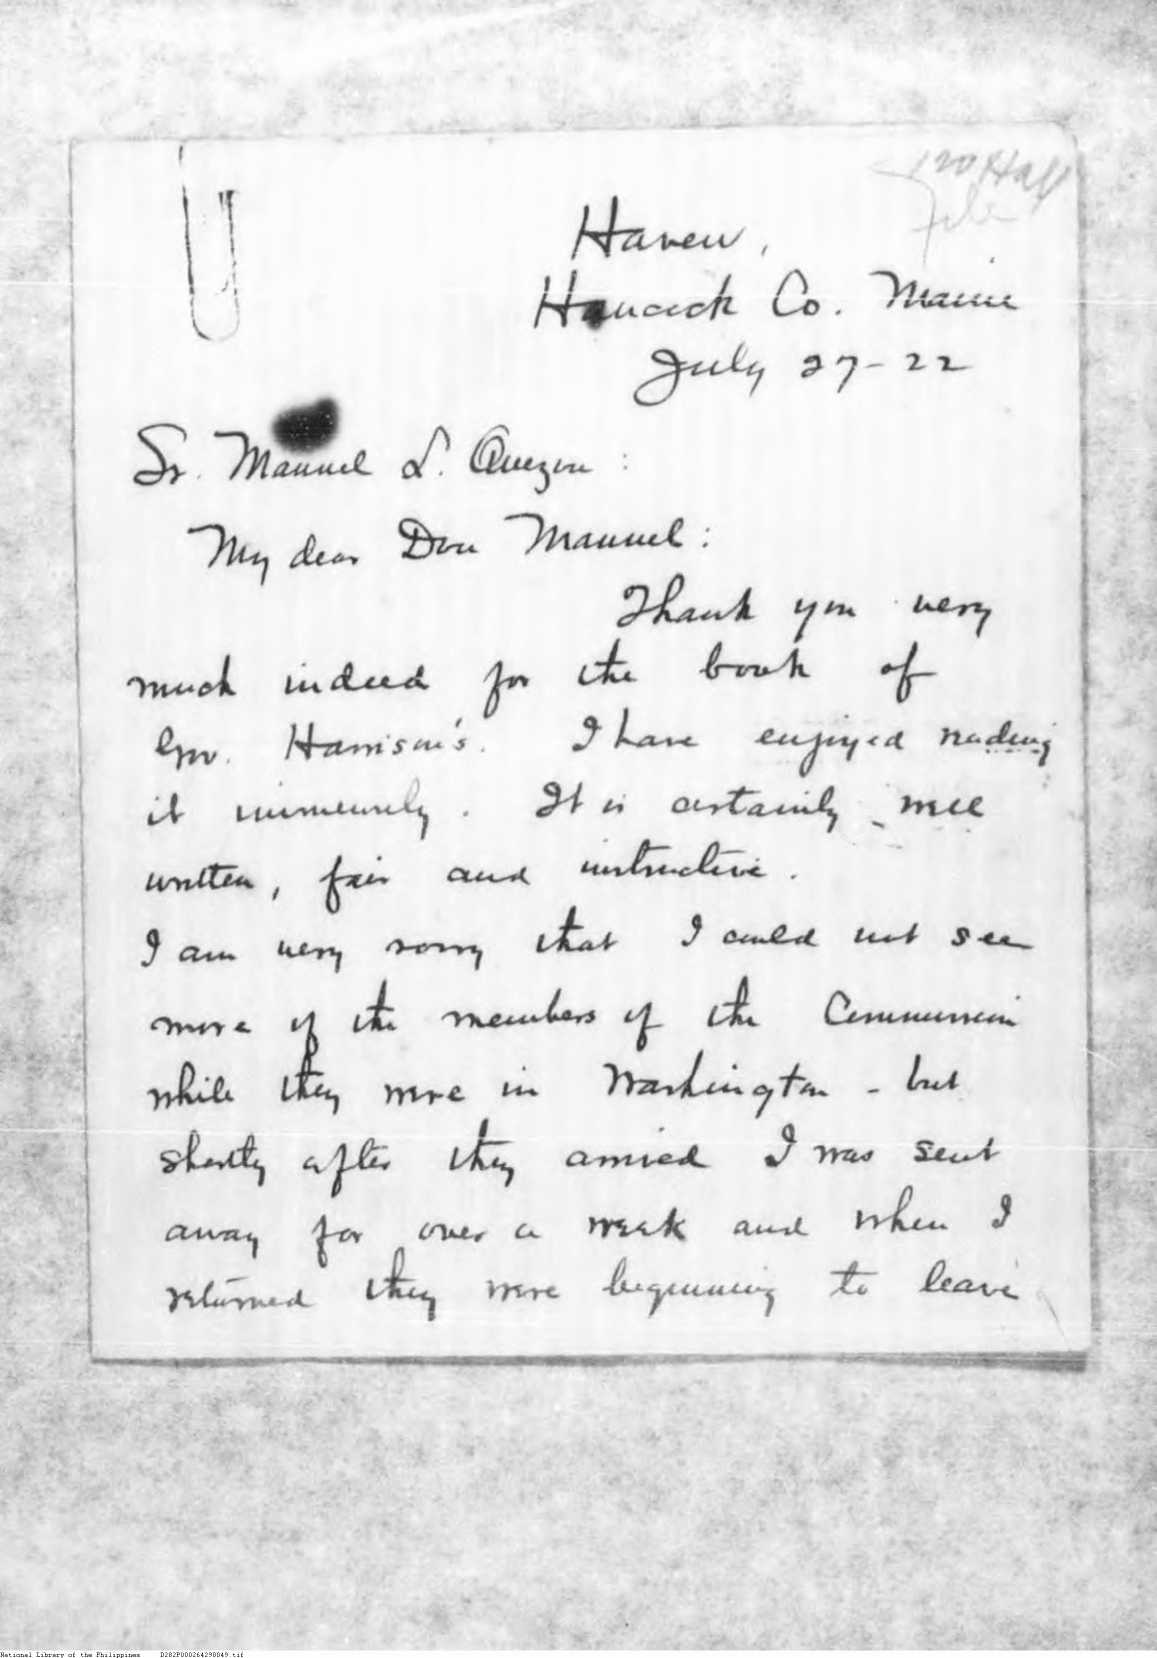 File
Haven,
Hancock Co. Maine
July 27-22
Sr. Manuel L. Quezon:
My dear Don Manuel:
Thank you very
much indeed for the book of
Gov. Harrison's. I have enjoyed reading
it immensely. It is certainly well
written, fair and instructive.
I am very sorry that I could not see
more of the members of the Commission
while they were in Washington - but
shortly after they arrived I was sent
away for over a week and when I
returned they were beginning to leave
National Library of the Philippines D282P000264290049.tif